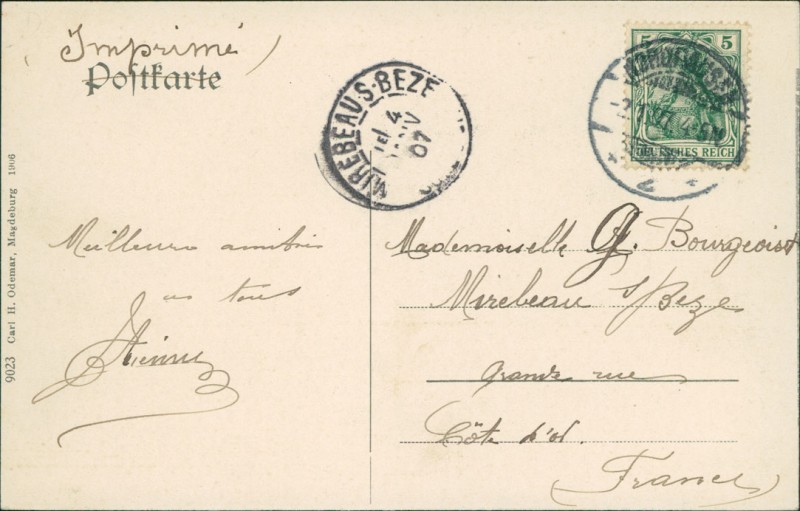 Imprimé
Postkarte
MIREBEAU-S-BEZE
4
07
5 5
DEUTSCHES REICH
9023 Carl H. Odemar, Magdeburg 1906
Meilleures amitiés
à tous
Mademoiselle G. Bourgeois
Mirebeau s/Beze
Grande rue
Côte d'or.
France